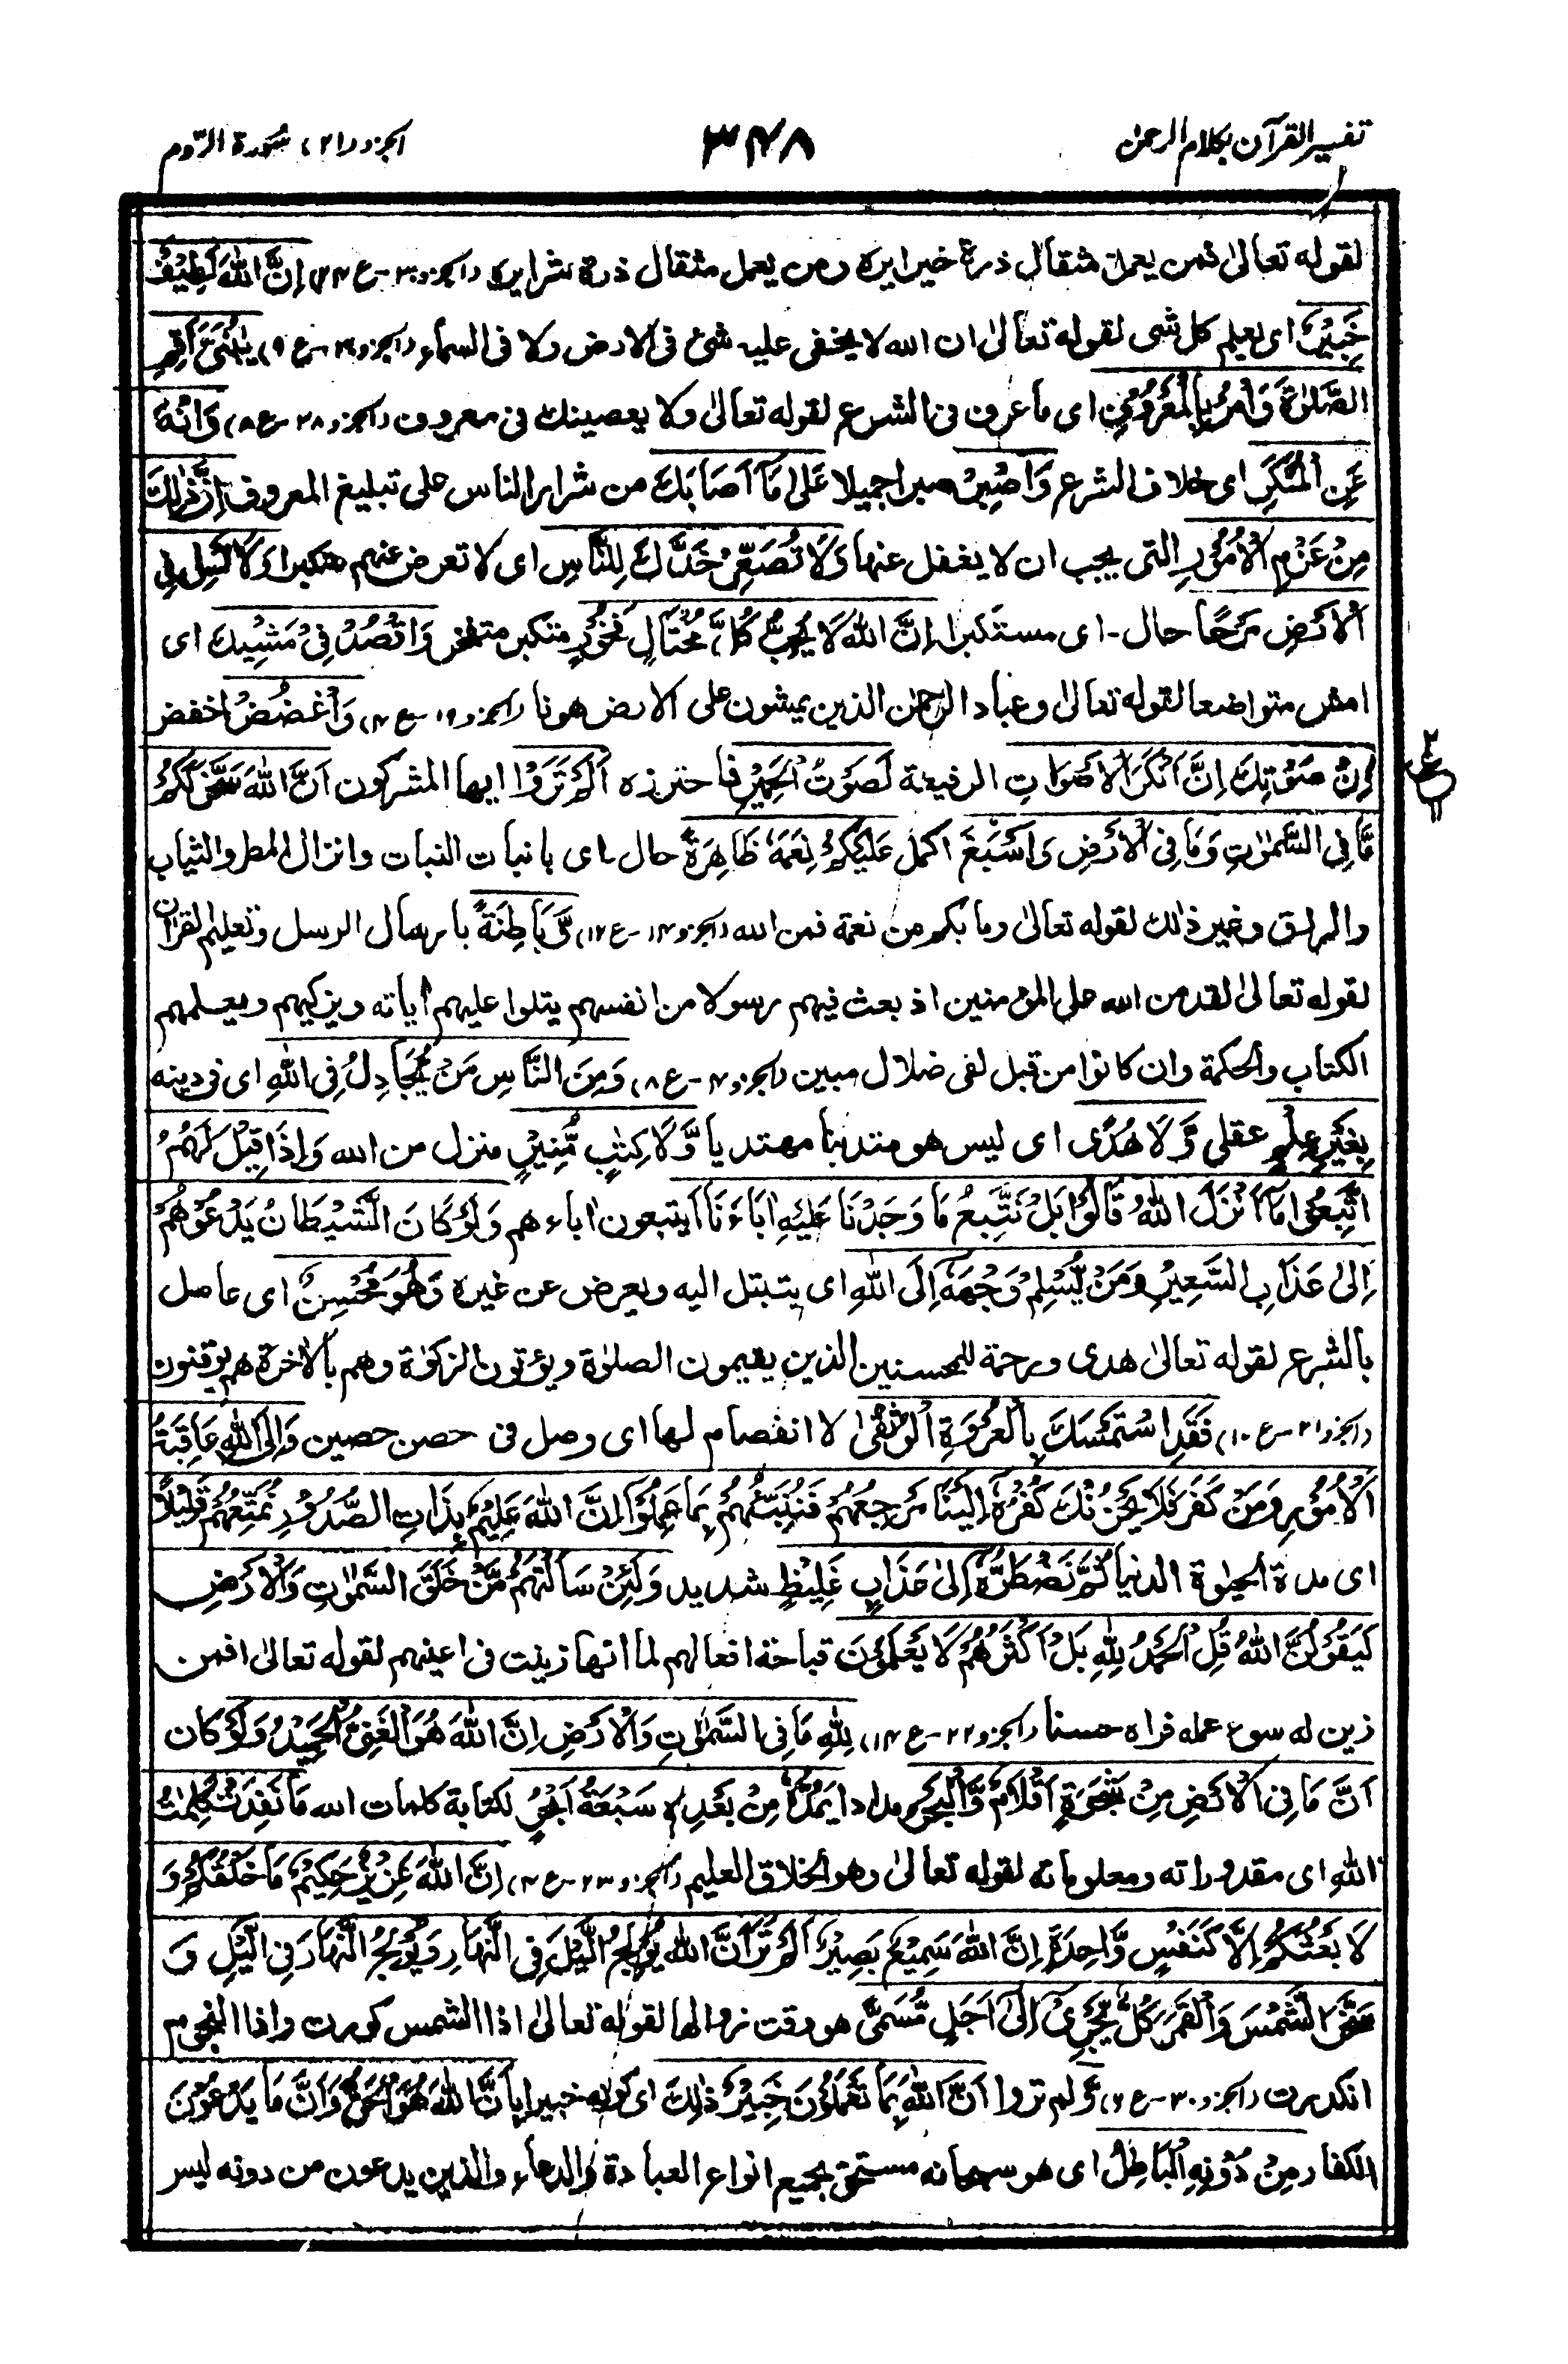 تفسير القرآن بكلام الرحمن
٣٤٨
الجزو (٢١) سُورة الرّوم
لقوله تعالىٰ فمن يعمل مثقال ذرة خيرا يره ومن يعمل مثقال ذرة شرا يره (الجزو ٣٠-ع ٢٤) اِنَّ اللهَ لَطِيْفٌ
خَبِيْرٌ اى يعلم كل شى لقوله تعالىٰ ان الله لا يخفى عليه شئ فى الارض ولا فى السماء (الجزو ٣-ع ٩) يٰبُنَىَّ اَقِمِ
الصَّلوٰةَ وَأْمُرْ بِالْمَعْرُوْفِ اى ما عرف فى الشرع لقوله تعالىٰ ولا يعصينك فى معروف (الجزو ٢٨-ع ٨) وَانْهَ
عَنِ الْمُنْكَرِ اى خلاف الشرع وَاصْبِرْ صبرا جميلا عَلىٰ مَآ اَصَابَكَ من شرار الناس على تبليغ المعروف اِنَّ ذٰلِكَ
مِنْ عَزْمِ الْاُمُوْرِ التى يجب ان لا يغفل عنها وَلَا تُصَعِّرْ خَدَّكَ لِلنَّاسِ اى لا تعرض عنهم متكبرا وَلَا تَمْشِ فِى
الْاَرْضِ مَرَحًا حال - اى مستكبرا اِنَّ اللهَ لَا يُحِبُّ كُلَّ مُخْتَالٍ فَخُوْرٍ متكبر متفخر وَاقْصُدْ فِىْ مَشْيِكَ اى
امش متواضعا لقوله تعالىٰ وعباد الرحمٰن الذين يمشون على الارض هونا (الجزو ١٩-ع ٤) وَاغْضُضْ اخفض
مِنْ صَوْتِكَ اِنَّ اَنْكَرَ الْاَصْوَاتِ الرفيعة لَصَوْتُ الْحَمِيْرِ فاحترزه اَلَمْ تَرَوْا ايها المشركون اَنَّ اللهَ سَخَّرَ لَكُمْ
مَّا فِى السَّمٰوٰتِ وَمَا فِى الْاَرْضِ وَاَسْبَغَ اكمل عَلَيْكُمْ نِعَمَهٗ ظَاهِرَةً حال - اى بانبات النبات وانزال المطر والثياب
والمراسق وغير ذٰلك لقوله تعالىٰ وما بكم من نعمة فمن الله (الجزو ١٤-ع ١٢) وَّبَاطِنَةً بارسال الرسل وتعليم القرآن
لقوله تعالىٰ لقد من الله على المؤمنين اذ بعث فيهم رسولا من انفسهم يتلوا عليهم اٰياته ويزكيهم ويعلمهم
الكتاب والحكمة وان كانوا من قبل لفى ضلال مبين (الجزو ٤-ع ٨) وَمِنَ النَّاسِ مَنْ يُّجَادِلُ فِى اللهِ اى فى دينه
بِغَيْرِ عِلْمٍ عقلى وَّلَا هُدًى اى ليس هو متدينا مهتديا وَّلَا كِتٰبٍ مُّنِيْرٍ منزل من الله وَاِذَا قِيْلَ لَهُمُ
اتَّبِعُوْا مَآ اَنْزَلَ اللهُ قَالُوْا بَلْ نَتَّبِعُ مَا وَجَدْنَا عَلَيْهِ اٰبَآءَنَا أيتبعون اٰباءهم وَلَوْ كَانَ الشَّيْطَانُ يَدْعُوْهُمْ
اِلىٰ عَذَابِ السَّعِيْرِ وَمَنْ يُّسْلِمْ وَجْهَهٗ اِلَى اللهِ اى يتبتل اليه ويعرض عن غيره وَهُوَ مُحْسِنٌ اى عامل
بالشرع لقوله تعالىٰ هدى ورحمة للمحسنين الذين يقيمون الصلوٰة ويؤتون الزكوٰة وهم بالاٰخرة هم يوقنون
(الجزو ٢١-ع ١٠) فَقَدِ اسْتَمْسَكَ بِالْعُرْوَةِ الْوُثْقىٰ لا انفصام لها اى وصل فى حصن حصين وَاِلَى اللهِ عَاقِبَةُ
الْاُمُوْرِ وَمَنْ كَفَرَ فَلَا يَحْزُنْكَ كُفْرُهٗ اِلَيْنَا مَرْجِعُهُمْ فَنُنَبِّئُهُمْ بِمَا عَمِلُوْآ اِنَّ اللهَ عَلِيْمٌ بِذَاتِ الصُّدُوْرِ نُمَتِّعُهُمْ قَلِيْلًا
اى مدة الحيٰوة الدنيا ثُمَّ نَضْطَرُّهُمْ اِلىٰ عَذَابٍ غَلِيْظٍ شديد وَلَئِنْ سَاَلْتَهُمْ مَّنْ خَلَقَ السَّمٰوٰتِ وَالْاَرْضَ
لَيَقُوْلُنَّ اللهُ قُلِ الْحَمْدُ لِلهِ بَلْ اَكْثَرُهُمْ لَا يَعْلَمُوْنَ قباحة افعالهم لما انها زينت فى اعينهم لقوله تعالىٰ افمن
زين له سوء عمله فراٰه حسنا (الجزو ٢٢-ع ١٤) لِلهِ مَا فِى السَّمٰوٰتِ وَالْاَرْضِ اِنَّ اللهَ هُوَ الْغَنِىُّ الْحَمِيْدُ وَلَوْ كان
اَنَّ مَا فِى الْاَرْضِ مِنْ شَجَرَةٍ اَقْلَامٌ وَّالْبَحْرُ مدادا يَمُدُّهٗ مِنْ بَعْدِهٖ سَبْعَةُ اَبْحُرٍ لكتابة كلمات الله مَا نَفِدَتْ كَلِمٰتُ
اللهِ اى مقدوراته ومعلوماته لقوله تعالىٰ وهو الخلاق العليم (الجزو ٢٣-ع ٤) اِنَّ اللهَ عَزِيْزٌ حَكِيْمٌ مَا خَلْقُكُمْ وَ
لَا بَعْثُكُمْ اِلَّا كَنَفْسٍ وَّاحِدَةٍ اِنَّ اللهَ سَمِيْعٌ بَصِيْرٌ اَلَمْ تَرَ اَنَّ اللهَ يُوْلِجُ الَّيْلَ فِى النَّهَارِ وَيُوْلِجُ النَّهَارَ فِى الَّيْلِ وَ
سَخَّرَ الشَّمْسَ وَالْقَمَرَ كُلٌّ يَّجْرِىْٓ اِلىٰٓ اَجَلٍ مُّسَمًّى هو وقت زوالها لقوله تعالىٰ اذا الشمس كورت واذا النجوم
انكدرت (الجزو ٣٠-ع ٦) وَّلم تروا اَنَّ اللهَ بِمَا تَعْمَلُوْنَ خَبِيْرٌ ذٰلِكَ اى كونه خبيرا بِاَنَّ اللهَ هُوَ الْحَقُّ وَاَنَّ مَا يَدْعُوْنَ
الكفار مِنْ دُوْنِهِ الْبَاطِلُ اى هو سبحانه مستحق بجميع انواع العبادة والدعاء والذين يدعون من دونه ليس